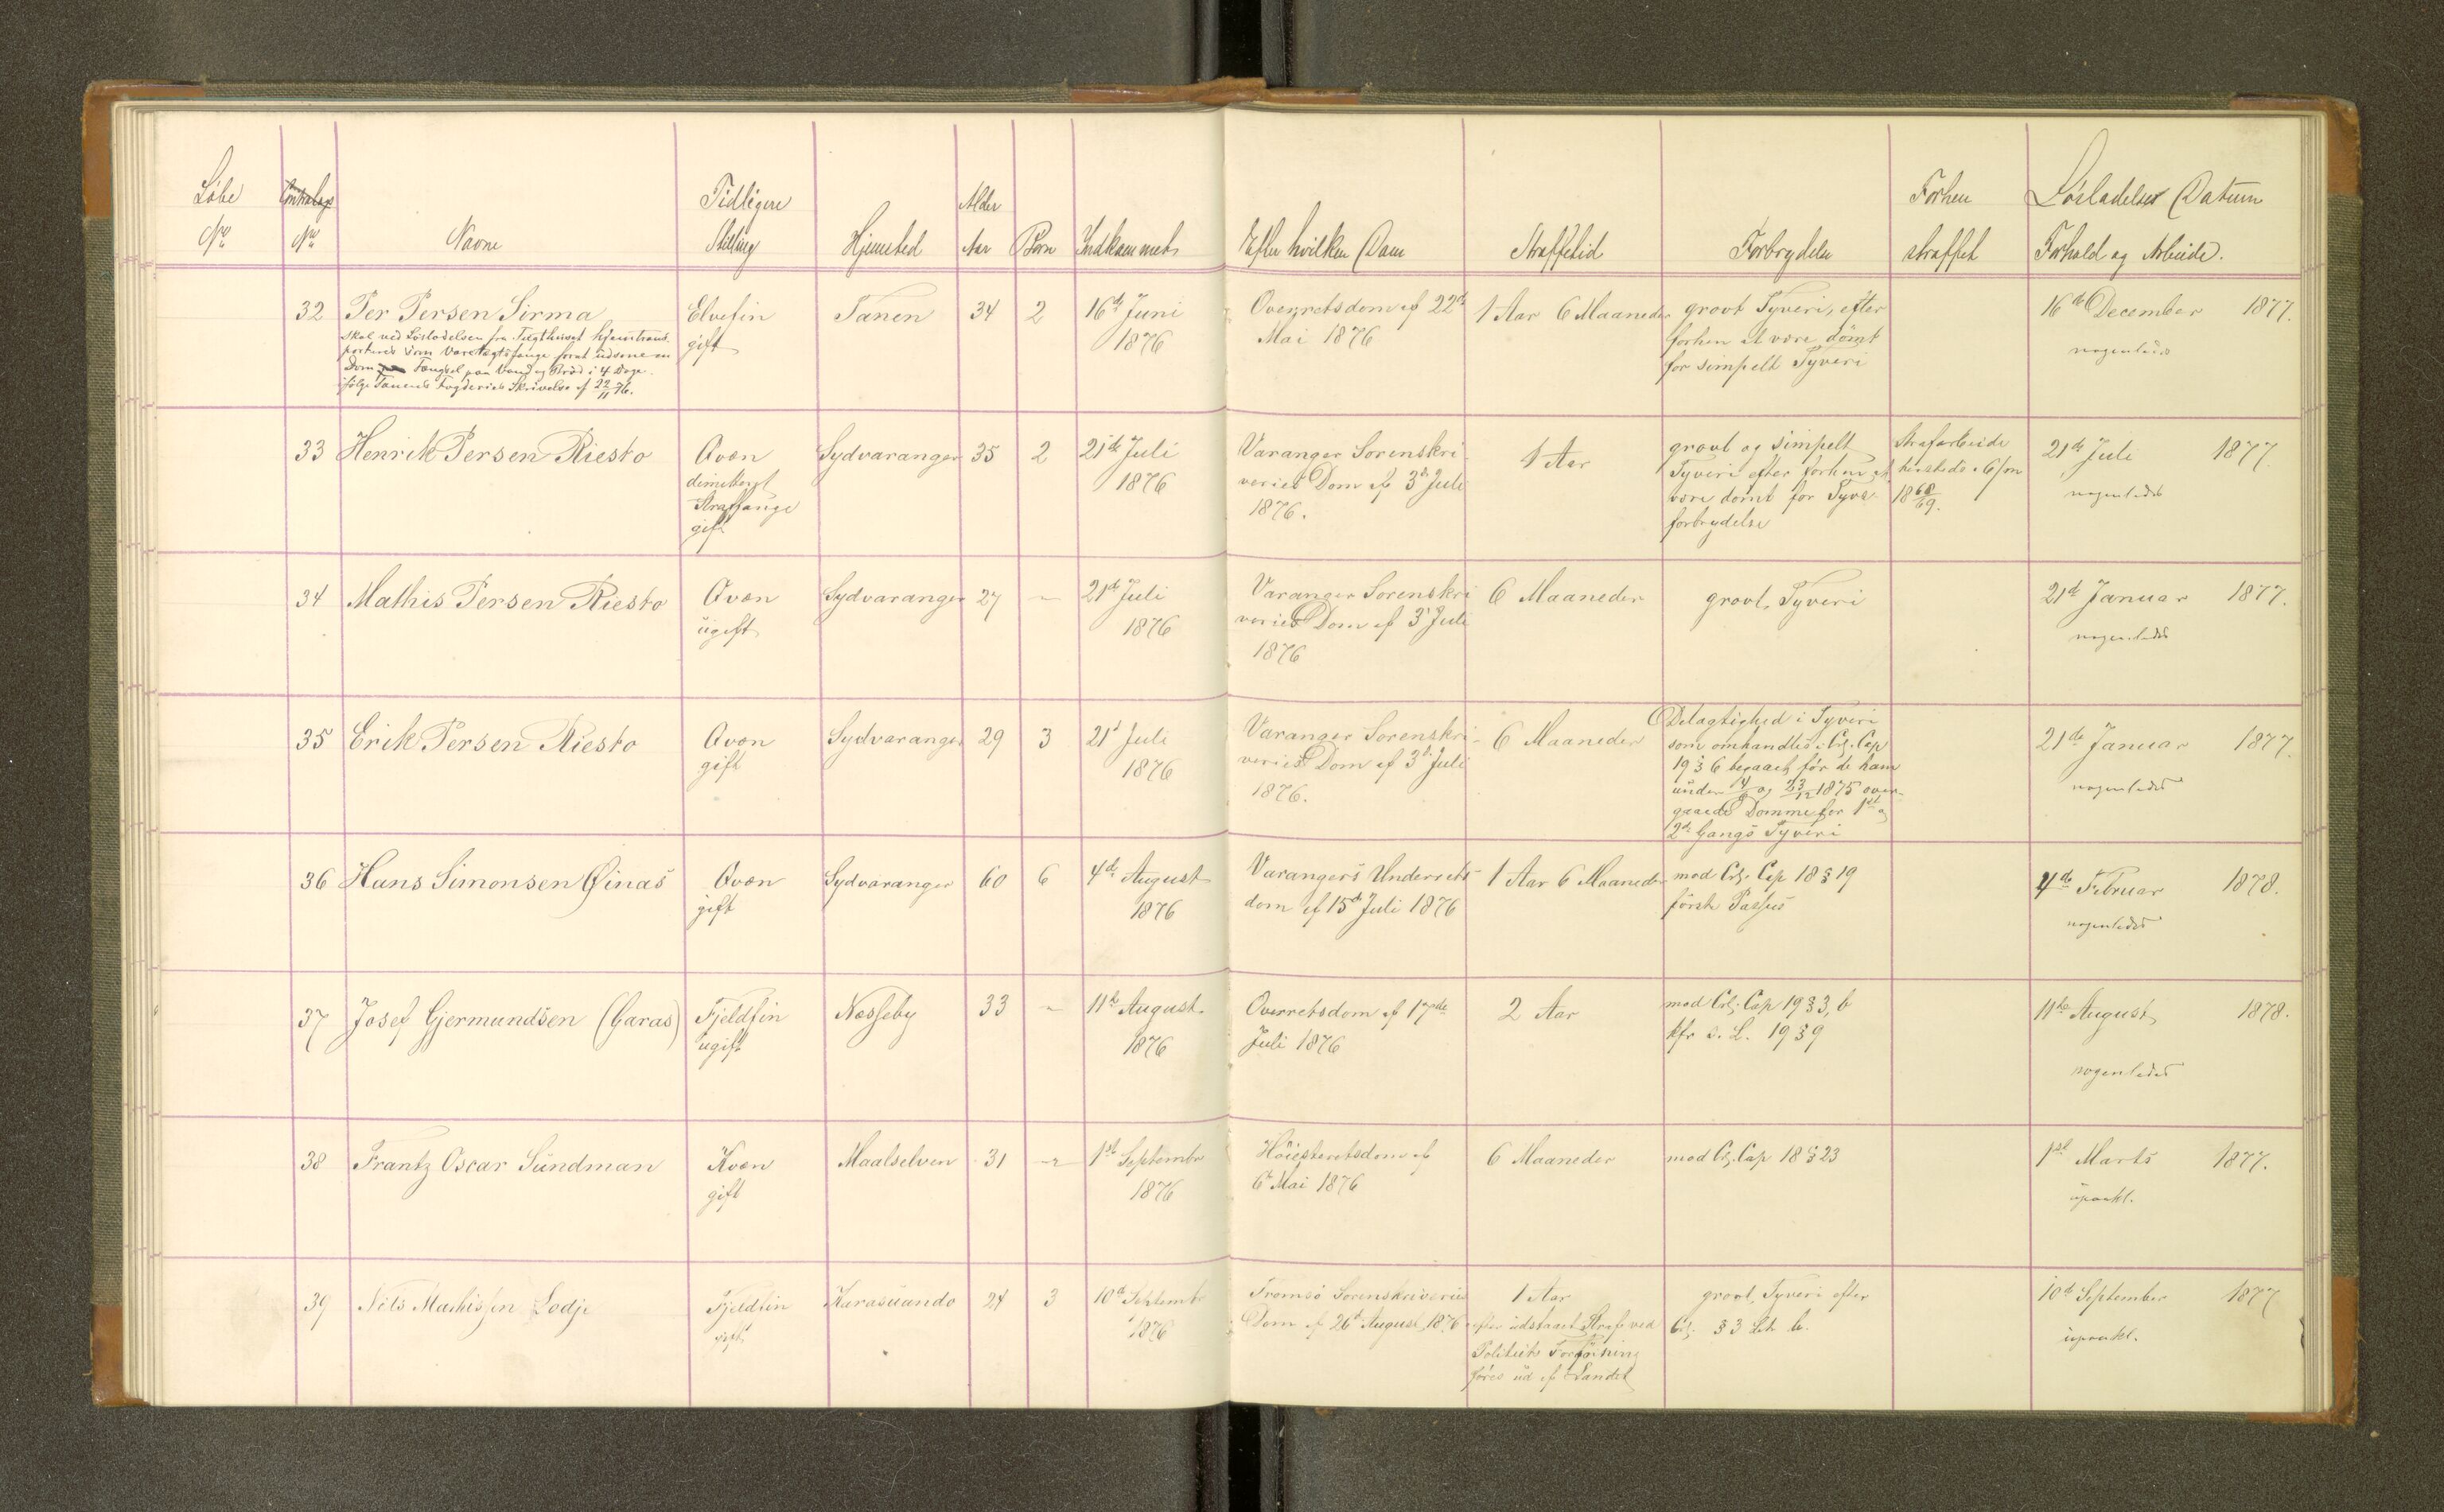 Løbe No
No
Navne
Tidligere Stilling
Hjemsted
Alder Aar
Børn
Indkommet
Efter hvilken Dom
Straffetid
Forbrydelse
Forhen straffet
Løsladelses Datum
Forhold og Arbeide.
32
Per Persen Sirma
skal ved Løsladelsen fra Tugthuset hjemtrans-
porteres som Varetægtsfange forat udsone en
Dom Fængsel paa Vand og Brød i 4 Dage
ifølge Tanens Fogderies Skrivelse af 22/11 76.
Elvefin
gift
Tanen
34
2
16de Juni
1876
Overretsdom af 22de
Mai 1876
1 Aar 6 Maaneder
grovt Tyveri, efter
forhen at være dømt
for simpelt Tyveri
16de December 1877.
nogenledes
33
Henrik Persen Riesto
Qvæn
dimitteret
Straffange
gift
Sydvaranger
35
2
21de Juli
1876
Varanger Sorenskri-
veries Dom af 3de Juli
1876.
1 Aar
grovt og simpelt
Tyveri efter forhen at
være dømt for Tyvs-
forbrydelse
Strafarbeide
hersteds 6/m
1868/69.
21de Juli 1877.
nogenledes
34
Mathis Persen Riesto
Qvæn
ugift
Sydvaranger
27
-
21de Juli
1876
Varanger Sorenskri
veries Dom af 3de Juli
1876
6 Maaneder
grovt Tyveri
21de Januar 1877.
nogenledes
35
Erik Persen Riesto
Qvæn
gift
Sydvaranger
29
3
21d Juli
1876
Varanger Sorenskri-
veries Dom af 3de Juli
1876.
6 Maaneder
Delagtighed i Tyveri
som omhandles i Crl. Cap
19 § 6 begaaet før de ham
under og 23/12 1875 over-
gaaede Domme for 1st og
2de Gangs Tyveri
21de Januar 1877.
nogenledes
36
Hans Simonsen Øinas
Qvæn
gift
Sydvaranger
60
6
4de August
1876
Varangers Underrets-
dom af 15de Juli 1876
1 Aar 6 Maaneder
mod Crl. Cap 18 § 19
første Passus
4de Februar 1878.
nogenledes
37
Josef Gjermundsen (Garas)
Fjeldfin
ugift
Næsseby
33
-
11te August
1876
Overretsdom af 17de
Juli 1876
2 Aar
mod Crl. Cap 19 § 3, b
kfr s. L. 19 § 9
11te August 1878.
nogenledes
38
Frantz Oscar Sundman
Kvæn
gift
Maalselven
31
-
1st Septembr
1876
Høiesteretsdom af
6te Mai 1876
6 Maaneder
mod Crl. Cap 18 § 23
1st Marts 1877.
upaakl.
39
Nils Mathissen Lodje
Fjeldfin
gift
Karasuando
24
3
10de Septembr
1876
Tromsø Sorenskriveries
Dom af 26de August 1876
1 Aar
efter udstaaet Straf ved
Politiets Forføining
føres ud af Landet
grovt Tyveri efter
Crl. § 3 Litr b.
10de September 1877
upaakl.